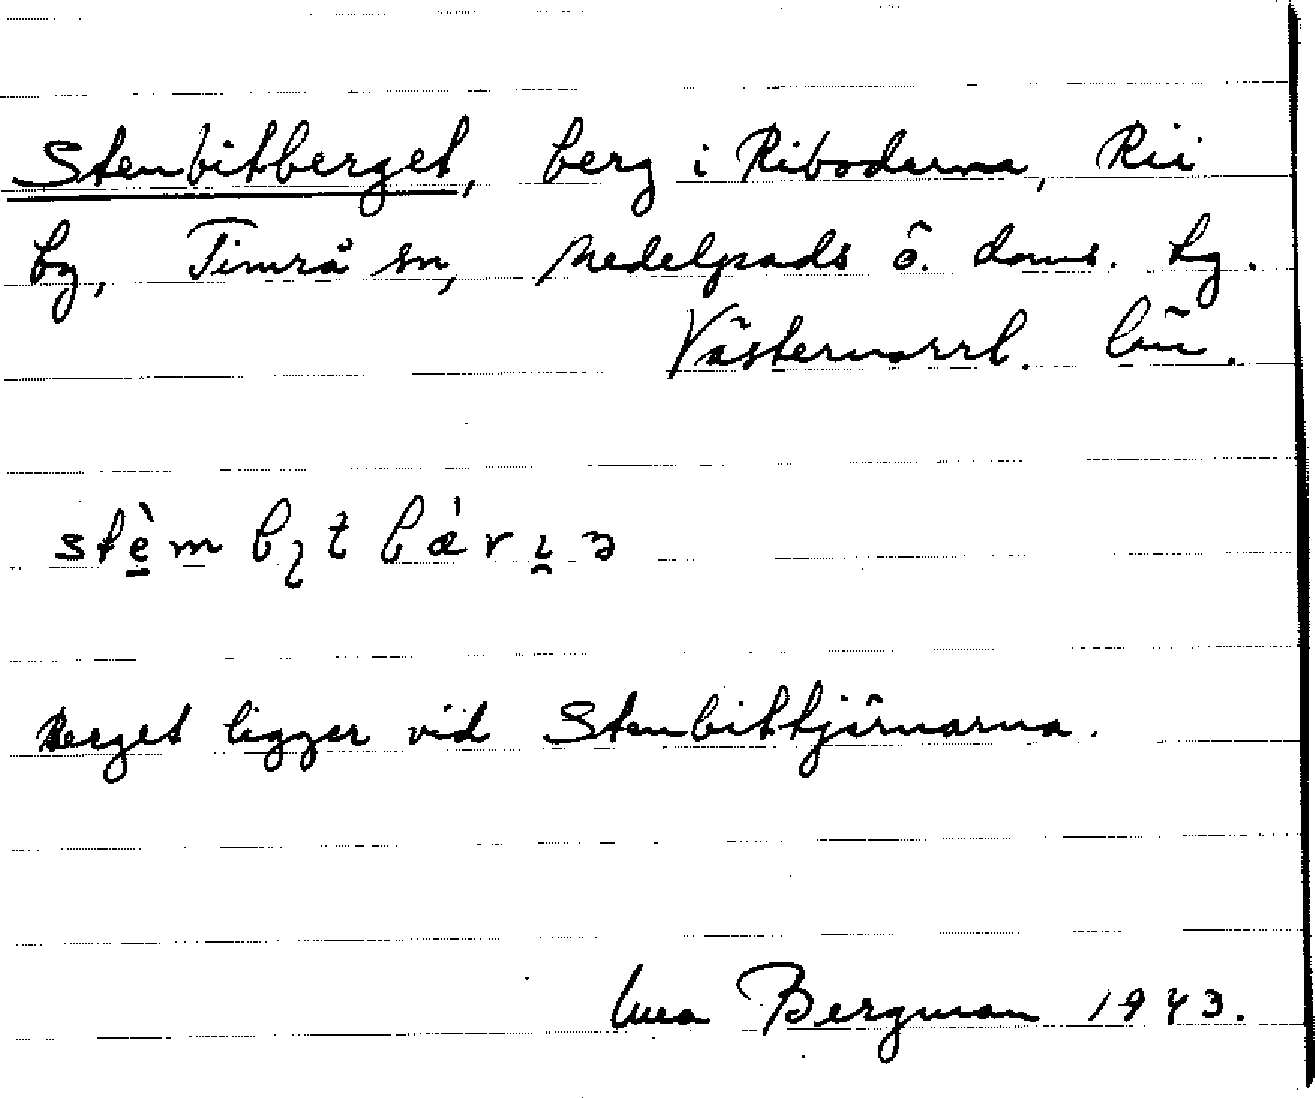 Stenbitberget, berg i Riboderna, Rii
by, Timrå sn, Medelpads ö. doms. hg.
Västernorrl. län.
stè̱m bɩt bǽr ı̯ ə
Berget ligger vid Stenbittjärnarna.
Bergman 1943.